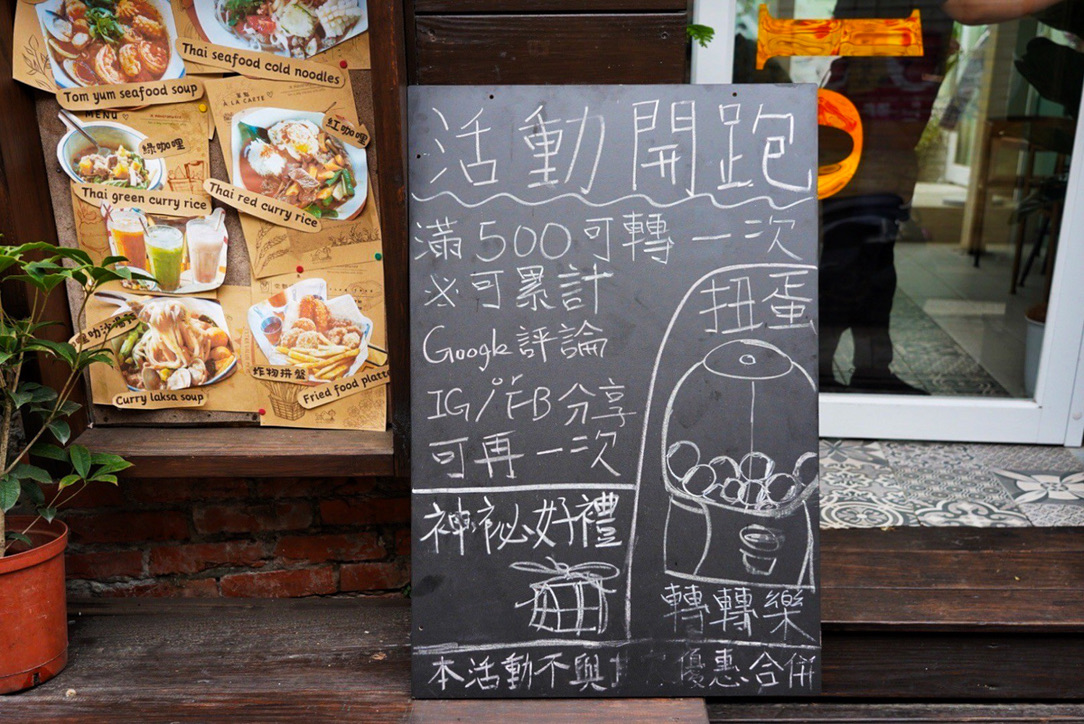 Thai seafood cold noodles
Tom yum seafood soup
MENU
À LA CARTE
紅咖哩
綠咖哩
Thai green curry rice
Thai red curry rice
炸物拼盤
Curry laksa soup
Fried food platte
活動開跑
滿500可轉一次
※可累計
Google評論
IG/FB分享
可再一次
神祕好禮
扭蛋
轉轉樂
本活動不與
優惠合併